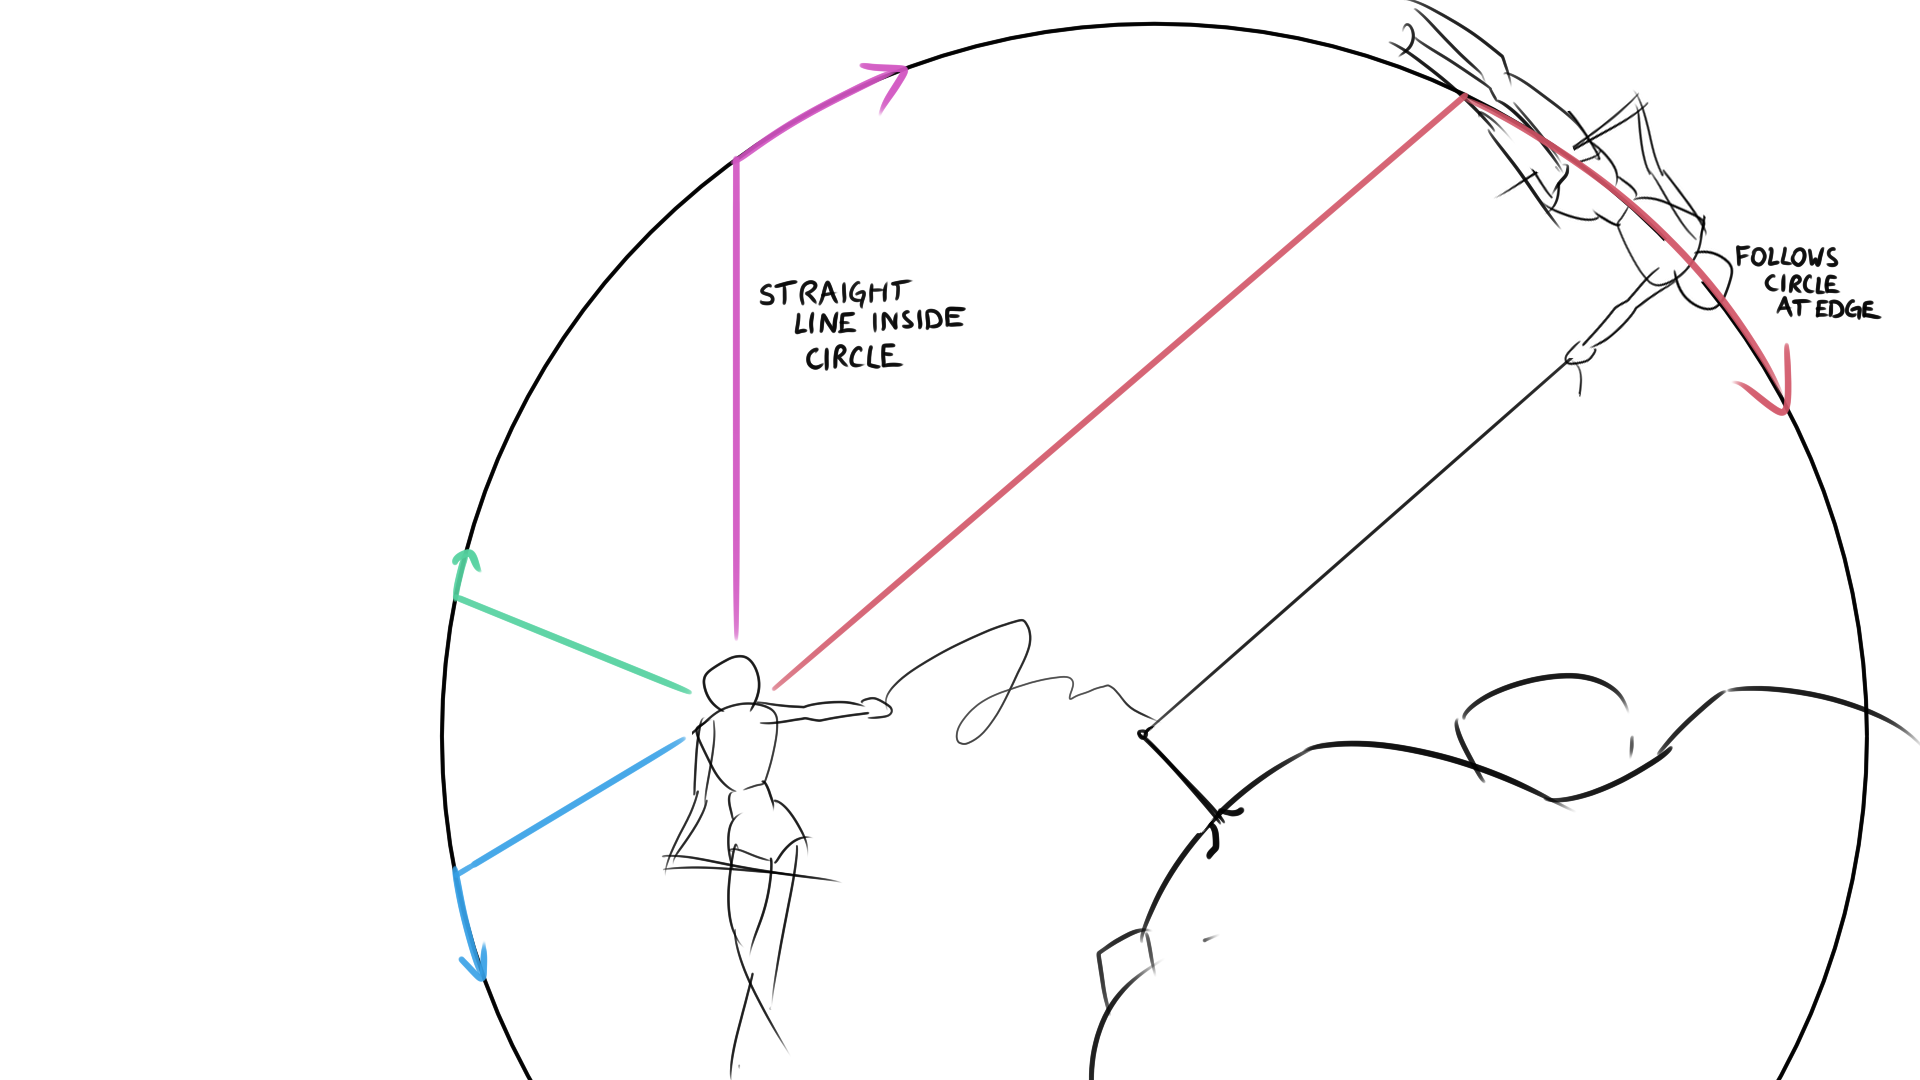 STRAIGHT
LINE INSIDE
CIRCLE
FOLLOWS
CIRCLE
AT EDGE